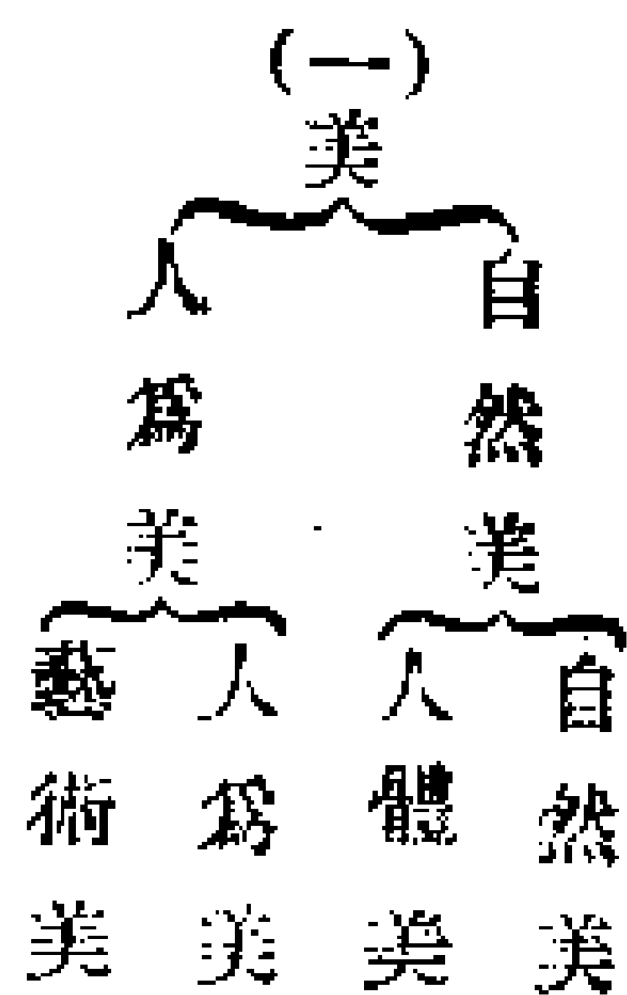 (一)
美
自然美
人爲美
自然美
人體美
人爲美
藝術美